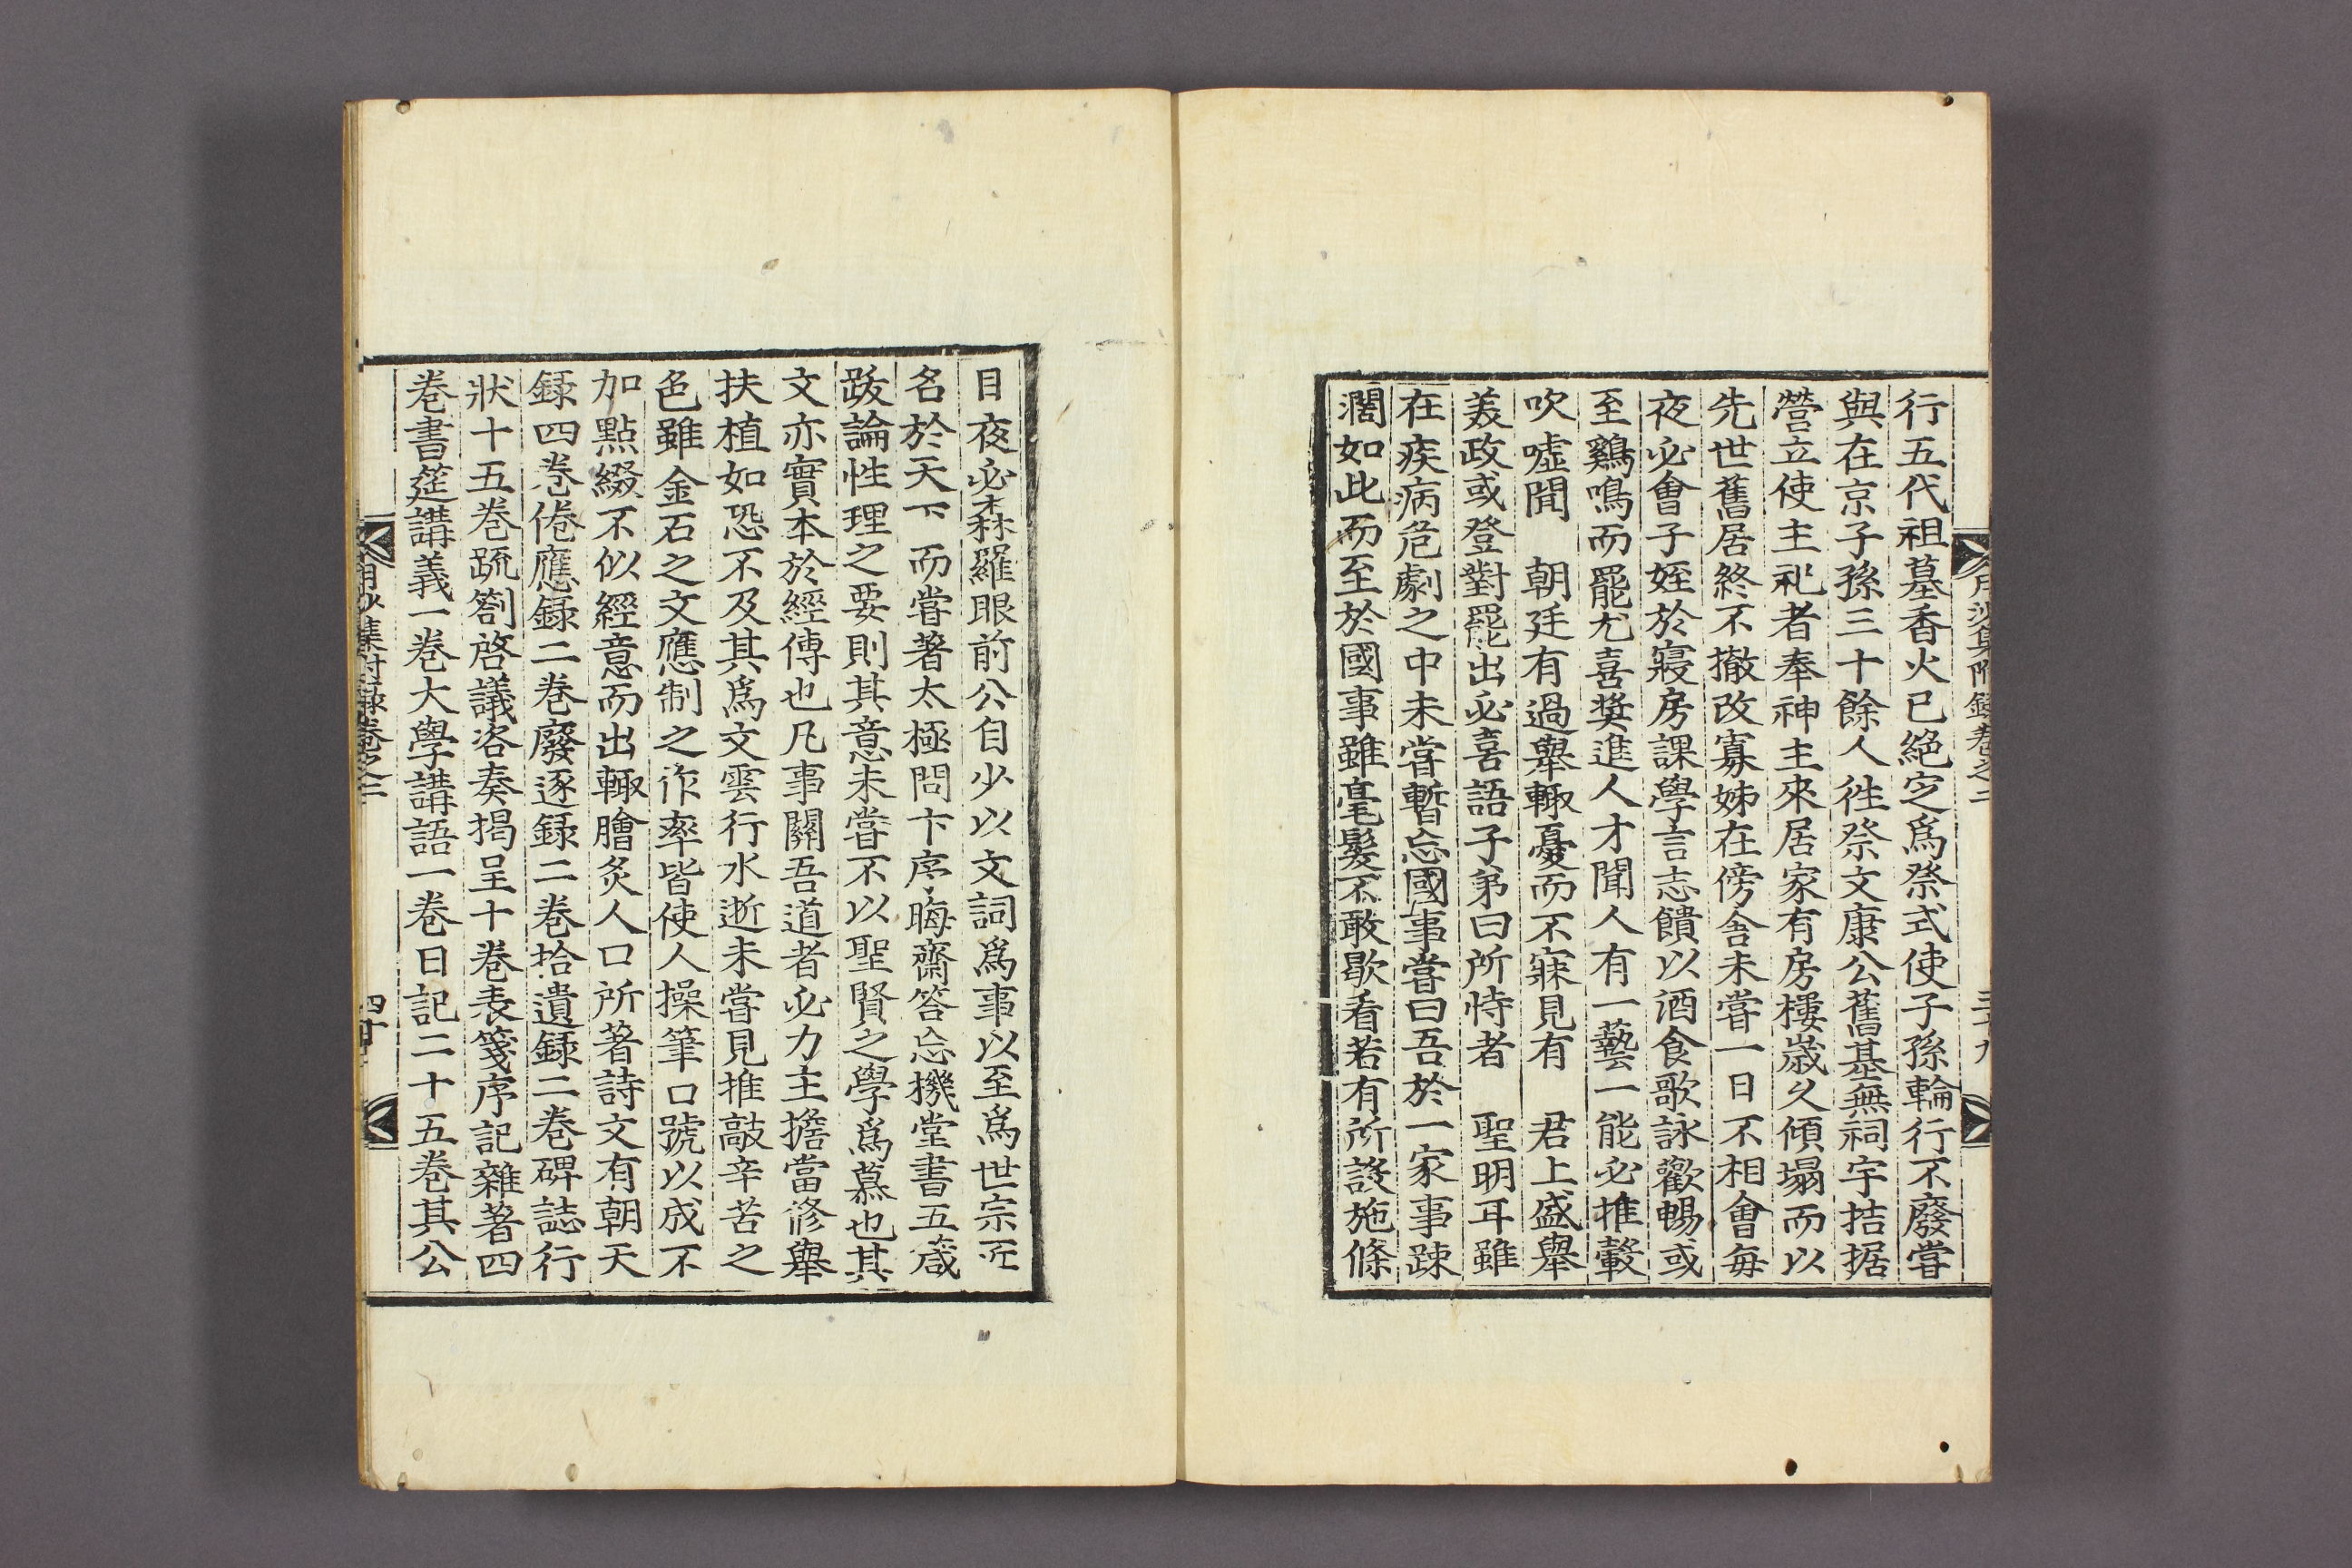 月沙集附錄卷之二 三十九
行五代祖墓香火已絕定爲祭式使子孫輪行不廢嘗
與在京子孫三十餘人徃祭文康公舊基無祠宇拮据
營立使主祀者奉神主來居家有房樓歲久傾塌而以
先世舊居終不撤改寡姊在傍舍未嘗一日不相會每
夜必會子姪於寢房課學言志饋以酒食歌詠歡暢或
至鷄鳴而罷尤喜奬進人才聞人有一藝一能必推轂
吹噓聞 朝廷有過舉輙憂而不寐見有 君上盛舉
美政或登對罷出必喜語子弟曰所恃者 聖明耳雖
在疾病危劇之中未嘗暫忘國事嘗曰吾於一家事踈
濶如此而至於國事雖毫髮不敢歇看若有所設施條
目夜必森羅眼前公自少以文詞爲事以至爲世宗匠
名於天下而嘗著太極問卞序晦齋答忘機堂書五箴
跋論性理之要則其意未嘗不以聖賢之學爲慕也其
文亦實本於經傳也凡事關吾道者必力主擔當修舉
扶植如恐不及其爲文雲行水逝未嘗見推敲辛苦之
色雖金石之文應制之作率皆使人操筆口號以成不
加點綴不似經意而出輙膾炙人口所著詩文有朝天
錄四卷倦應錄二卷廢逐錄二卷拾遺錄二卷碑誌行
狀十五卷疏劄啓議咨奏揭呈十卷表箋序記雜著四
卷書筵講義一卷大學講語一卷日記二十五卷其公
月沙集附錄卷之二 四十